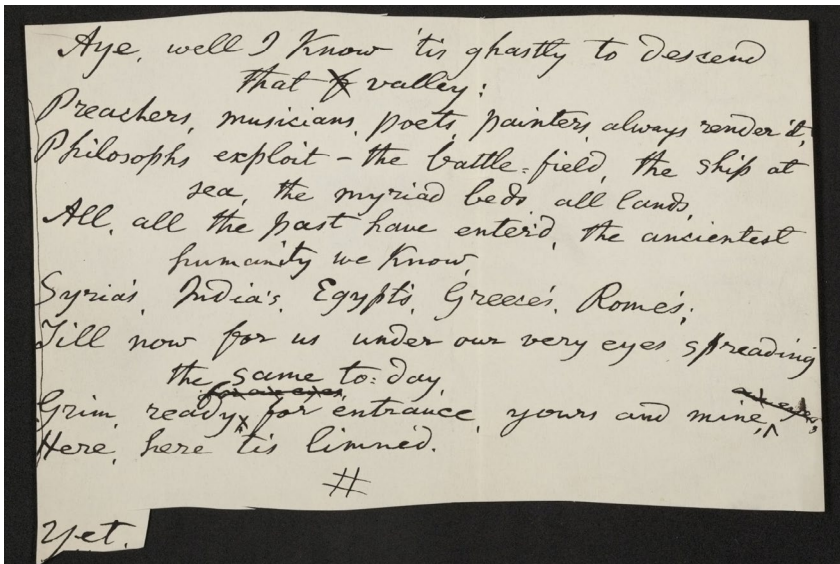 Aye, well I Know 'tis ghastly to descend
that valley:
Preachers, musicians, poets, painters, always render it,
Philosophs exploit – the battle-field, the ship at
sea, the myriad beds, all lands,
All, all the past have enter'd, the ancientest
humanity we Know,
Syria's, India's, Egypt's, Greece's, Rome's;
Till now for us under our very eyes spreading
the same to-day,
Grim, ready, for entrance, yours and mine,
Here, here 'tis limned.
#
Yet.